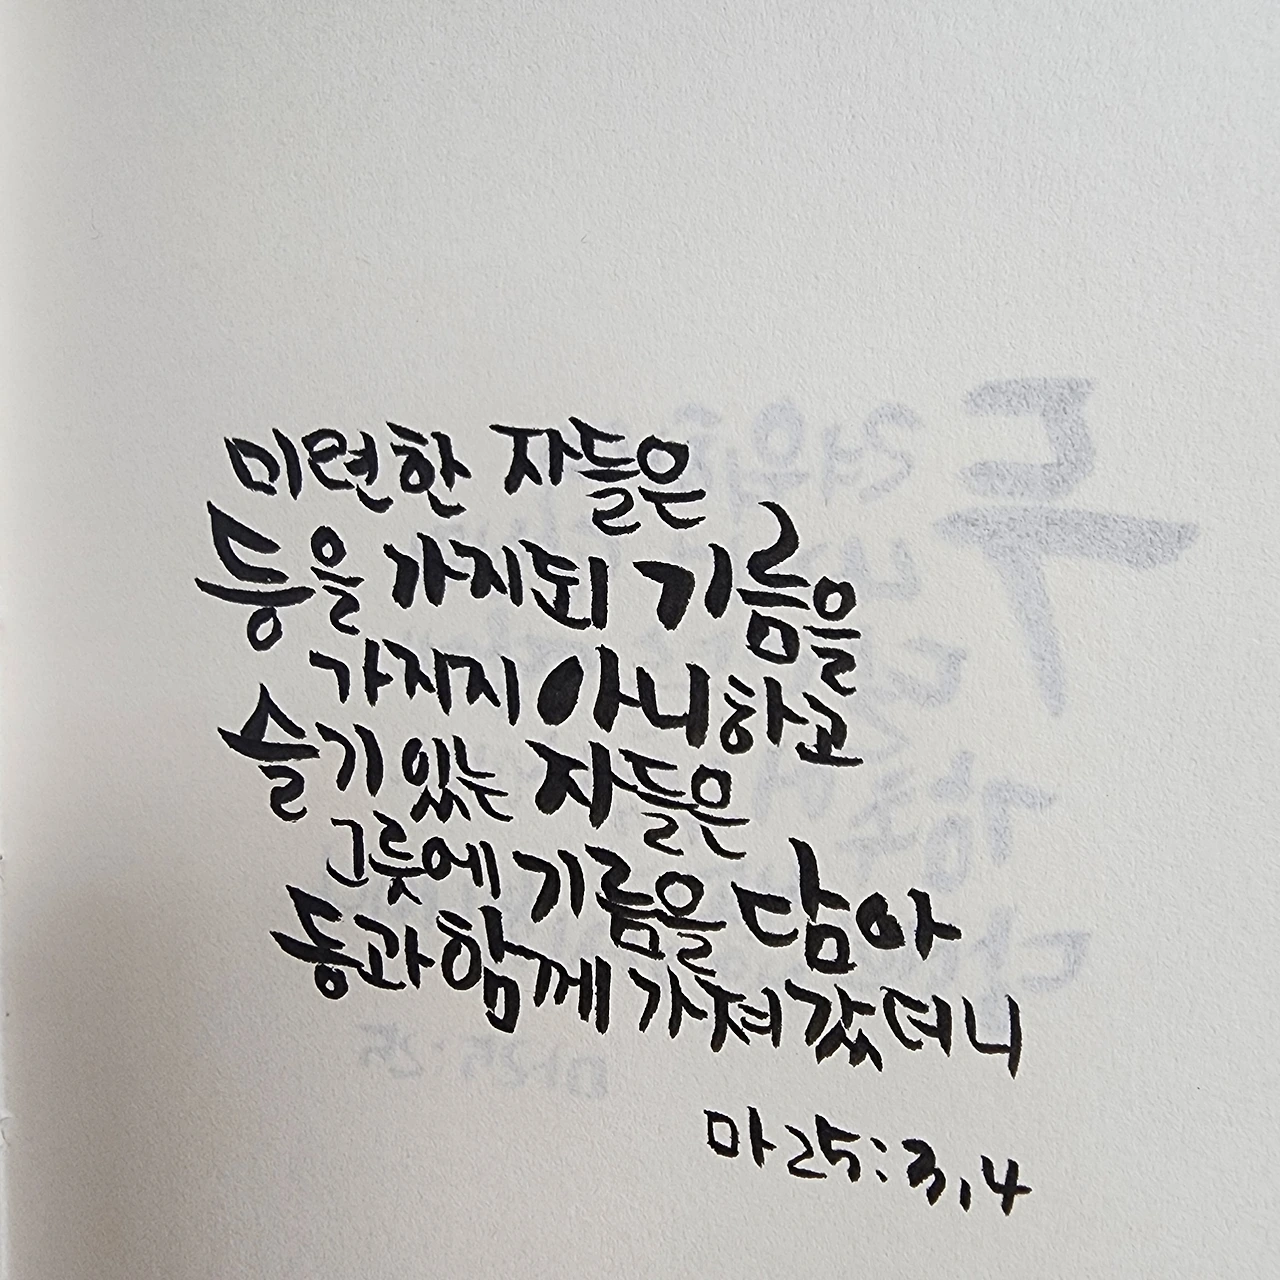 미련한 자들은
등을 가지되 기름을
가지지 아니하고
슬기 있는 자들은
그릇에 기름을 담아
등과 함께 가져 갔더니
마 25:3,4
마 25:25